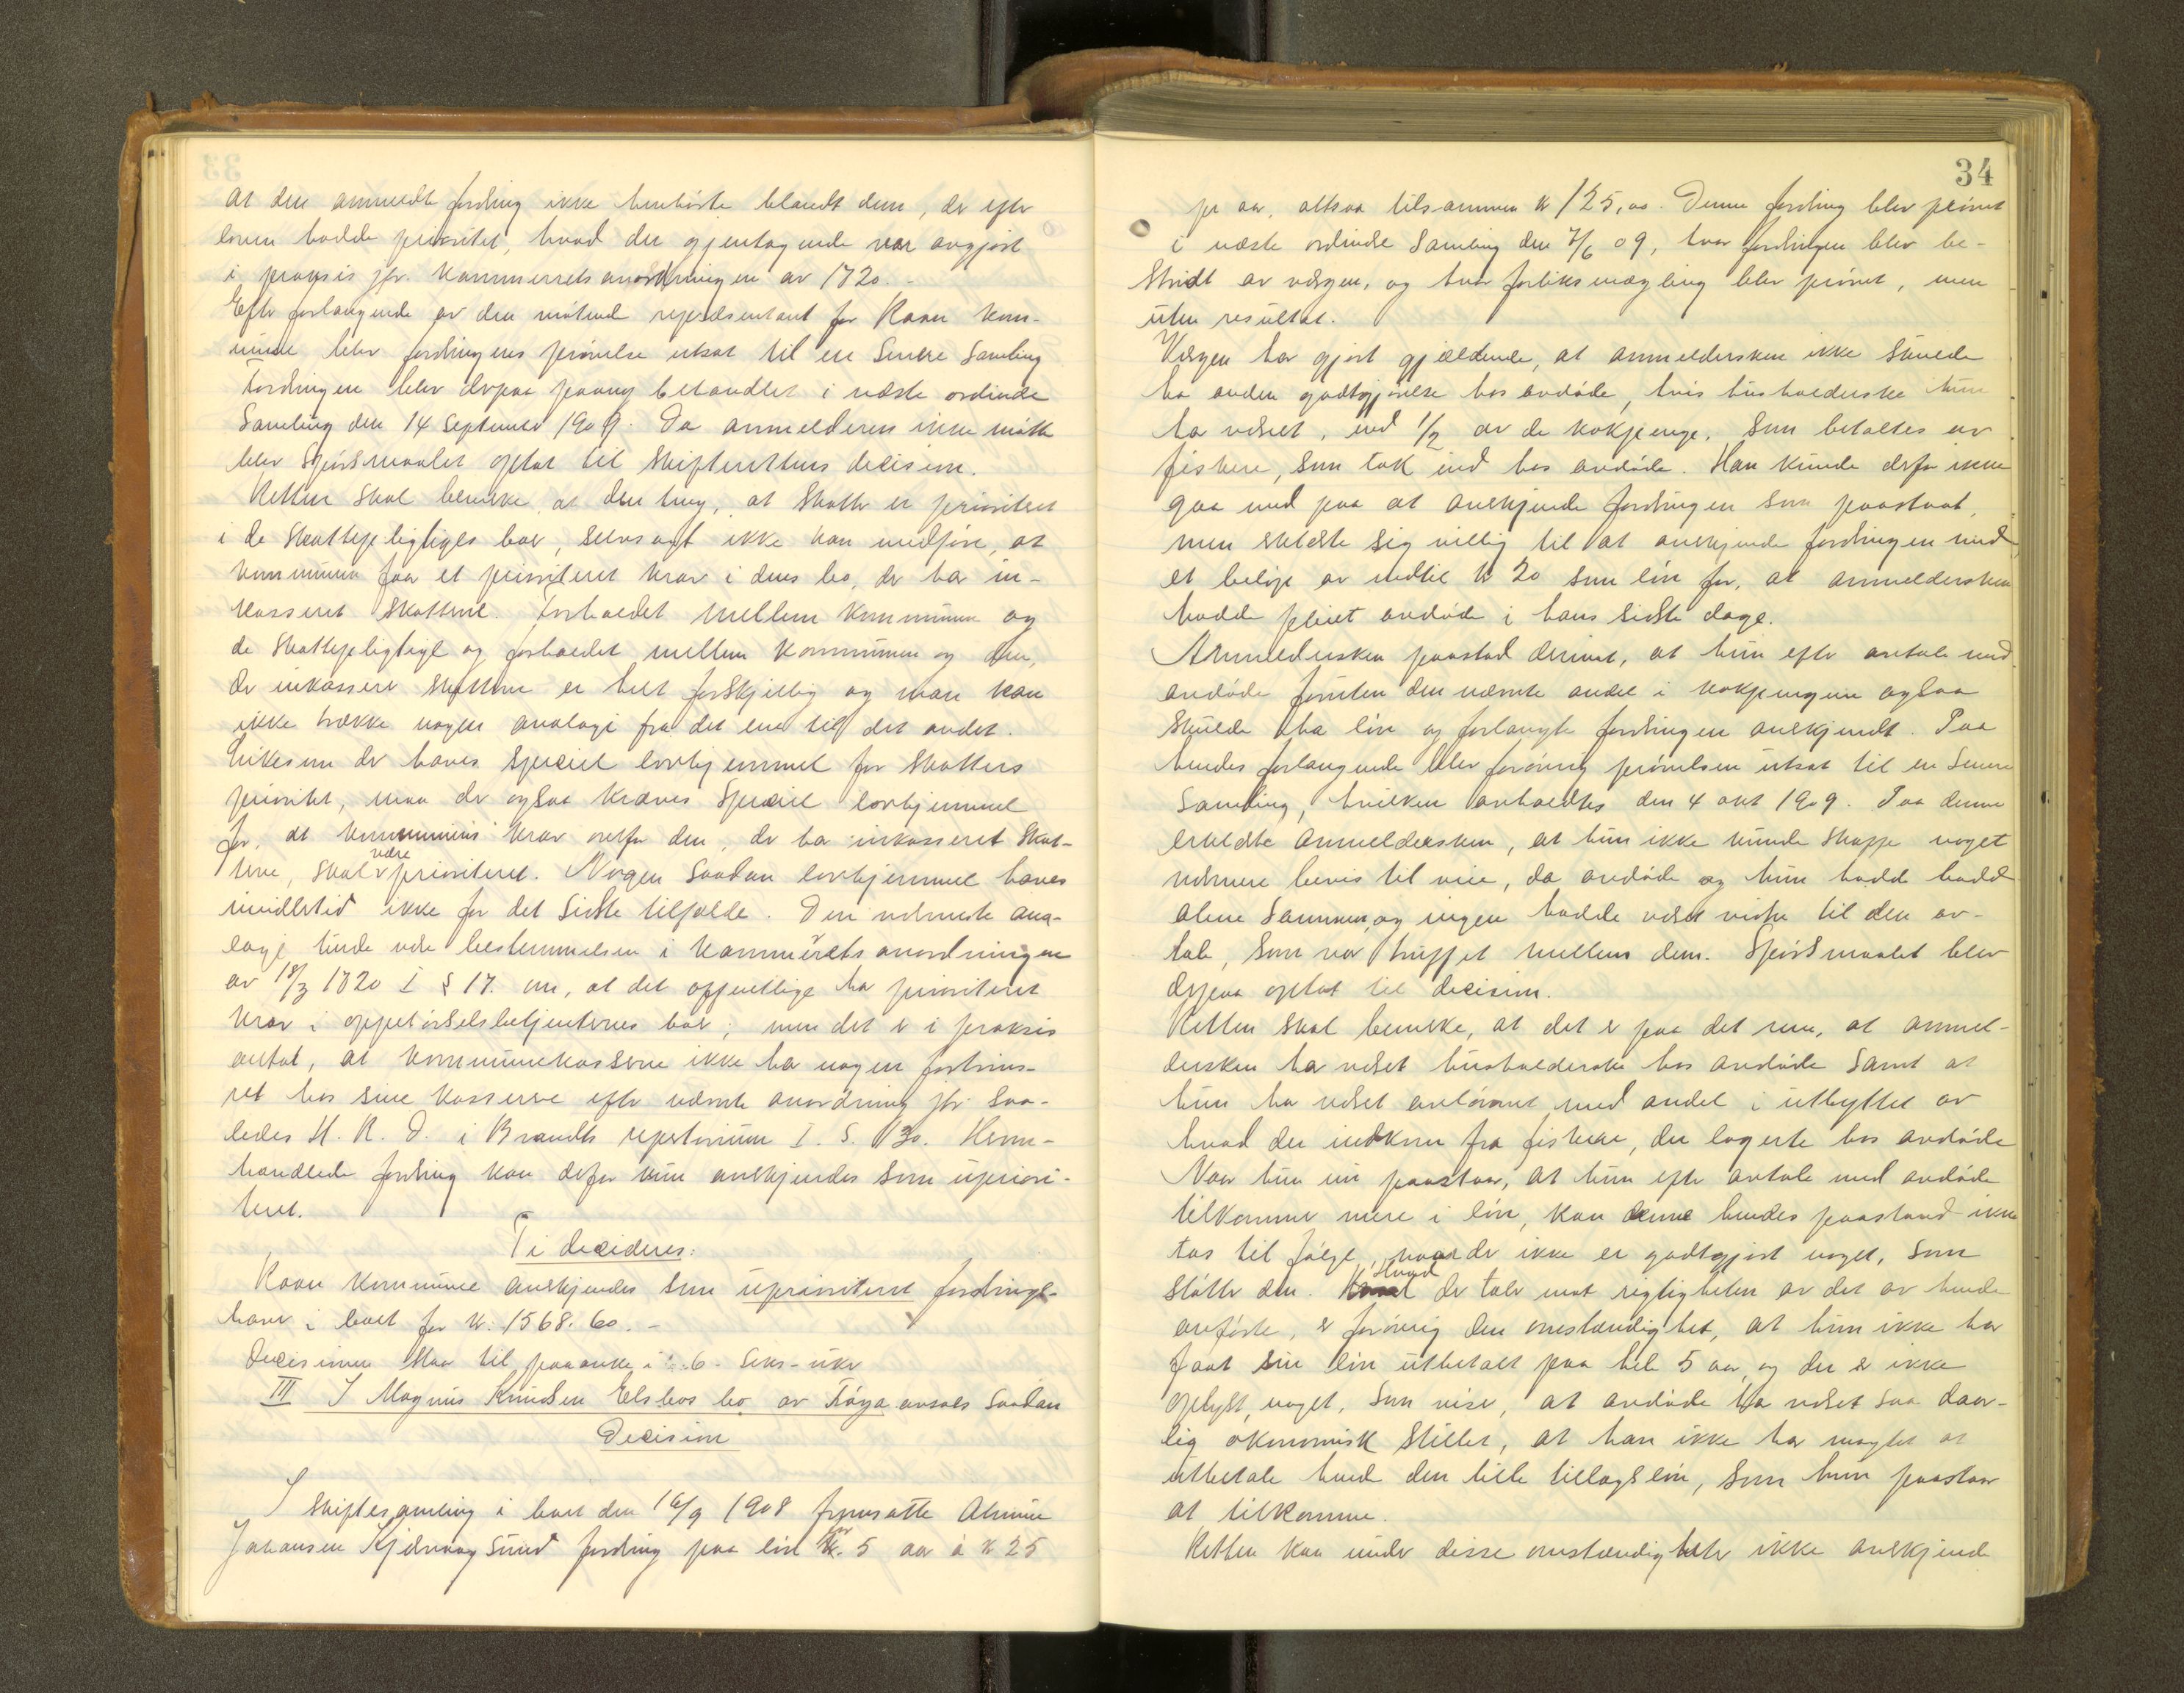 at den anmeldte fordring ikke henhørte blandt dem, der efter
loven hadde prioritet, hvad der gjentagende var avgjort
i praxis jfr. Kammerretsanordningen av 1720. -
Efter forlangende av den møtende repræsentant for Roan kom-
mune blev fordringens prøvelse utsat til en senere samling
Fordringen blev derpaa paany behandlet i næste ordinære
Samling den 14 September 1909. Da anmelderen ikke møtte
blev spørsmaalet optat til skifterettens decision.
Retten skal bemerke, at den ting, at skatter er prioritert
i de skattepligtiges boer, selvsagt ikke kan medføre, at
kommunen faar et prioriteret krav i dens bo, der har in-
kasseret skatterne. Forholdet mellem kommunen og
de skattepligtige og forholdet mellem kommunen og den,
der inkasserer skatterne er helt forskjellig og man kan
ikke trække nogen analogi fra det ene til det andet.
Likesom der haves speciel lovhjemmel for skatters
prioritet, maa der ogsaa kræves speciel lovhjemmel
for, at kommunens krav overfor den, der har inkasseret skat-
terne, skal være prioriteret. Nogen saadan lovhjemmel haves
imidlertid ikke for det sidste tilfælde. Den nærmeste ana-
logi turde være bestemmelsen i Kammerretsanordningen
av 18/3 1720 I § 17. om, at det offentlige har prioriteret
krav i oppebørselsbetjenternes boer; men det er i praksis
antat, at kommunekasserne ikke har nogen fortrins-
ret hos sine kasserere efter nævnte anordning jfr. saa-
ledes H. R. D. i Brandts repertorium I. S. 30. Hern-
handlede fordring kan derfor kun anerkjendes som upriori-
teret.
Ti decideres:
Roan kommune anerkjendes som uprioriteret fordrings-
haver i boet for kr. 1568.60. -
Decisionen staar til paaanke i: 6 - seks - uker
III I Magnus Knudsen Elsbos bo av Frøya avsaes saadan
Decision
I skiftesamling i boet den 16/9 1908 fremsatte
Johansen Kjervaagsund fordring paa løn for 5 aar à kr 25
34
pr aar, altsaa tilsammen kr 125,00. Denne fordring blev prøvet
i næste ordinære samling den 7/6 09, hvor fordringen blev be-
stridt av værgen, og hvor forliksmægling blev prøvet, men
uten resultat.
Værgen har gjort gjældende, at anmeldersken ikke skulde
ha anden godtgjørelse hos avdøde, hvis husholderske hun
har været, end 1/2 av de kokpenge, som betaltes av
fiskere, som tok ind hos avdøde. Han kunde derfor ikke
gaa med paa at anerkjende fordringen som paastaat,
men erklærte sig villig til at anerkjende fordringen med
et beløp av indtil kr 20 som løn for, at anmeldersken
hadde pleiet avdøde i hans sidste dage.
Anmeldersken paastod derimot, at hun efter avtale med
avdøde foruten den nævnte andel i kokpengene ogsaa
skulde ha løn og forlangte fordringen anerkjendt. Paa
hendes forlangende blev forøvrig prøvelsen utsat til en senere
samling, hvilken avholdtes den 4 okt 1909. Paa denne
erklærte anmeldersken, at hun ikke kunde skaffe noget
nærmere bevis til veie, da avdøde og hun hadde bodd
alene sammen, og ingen hadde været vidne til den av-
tale, som var truffet mellem dem. Spørsmaalet blev
derpaa optat til decision.
Retten skal bemerke, at det er paa det rene, at anmel-
dersken har været husholderske hos avdøde samt at
hun har været avlønnet med andel i utbyttet av
hvad der indkom fra fiskere, der logerte hos avdøde
Naar hun nu paastaar, at hun efter avtale med avdøde
tilkommer mere i løn, kan denne hendes paastand ikke
tas til følge, naar der ikke er godtgjort noget, som
støtter den. Hvad der taler mot rigtigheten av det av hende
anførte, er forøvrig den omstændighet, at hun ikke har
faat sin løn utbetalt paa hele 5 aar, og der er ikke
oplyst noget, som viser, at avdøde har været saa daar-
lig økonomisk stillet, at han ikke har magtet at
utbetale hende den lille tillægsløn, som hun paastaar
at tilkomme.
Retten kan under disse omstændigheter ikke anerkjende